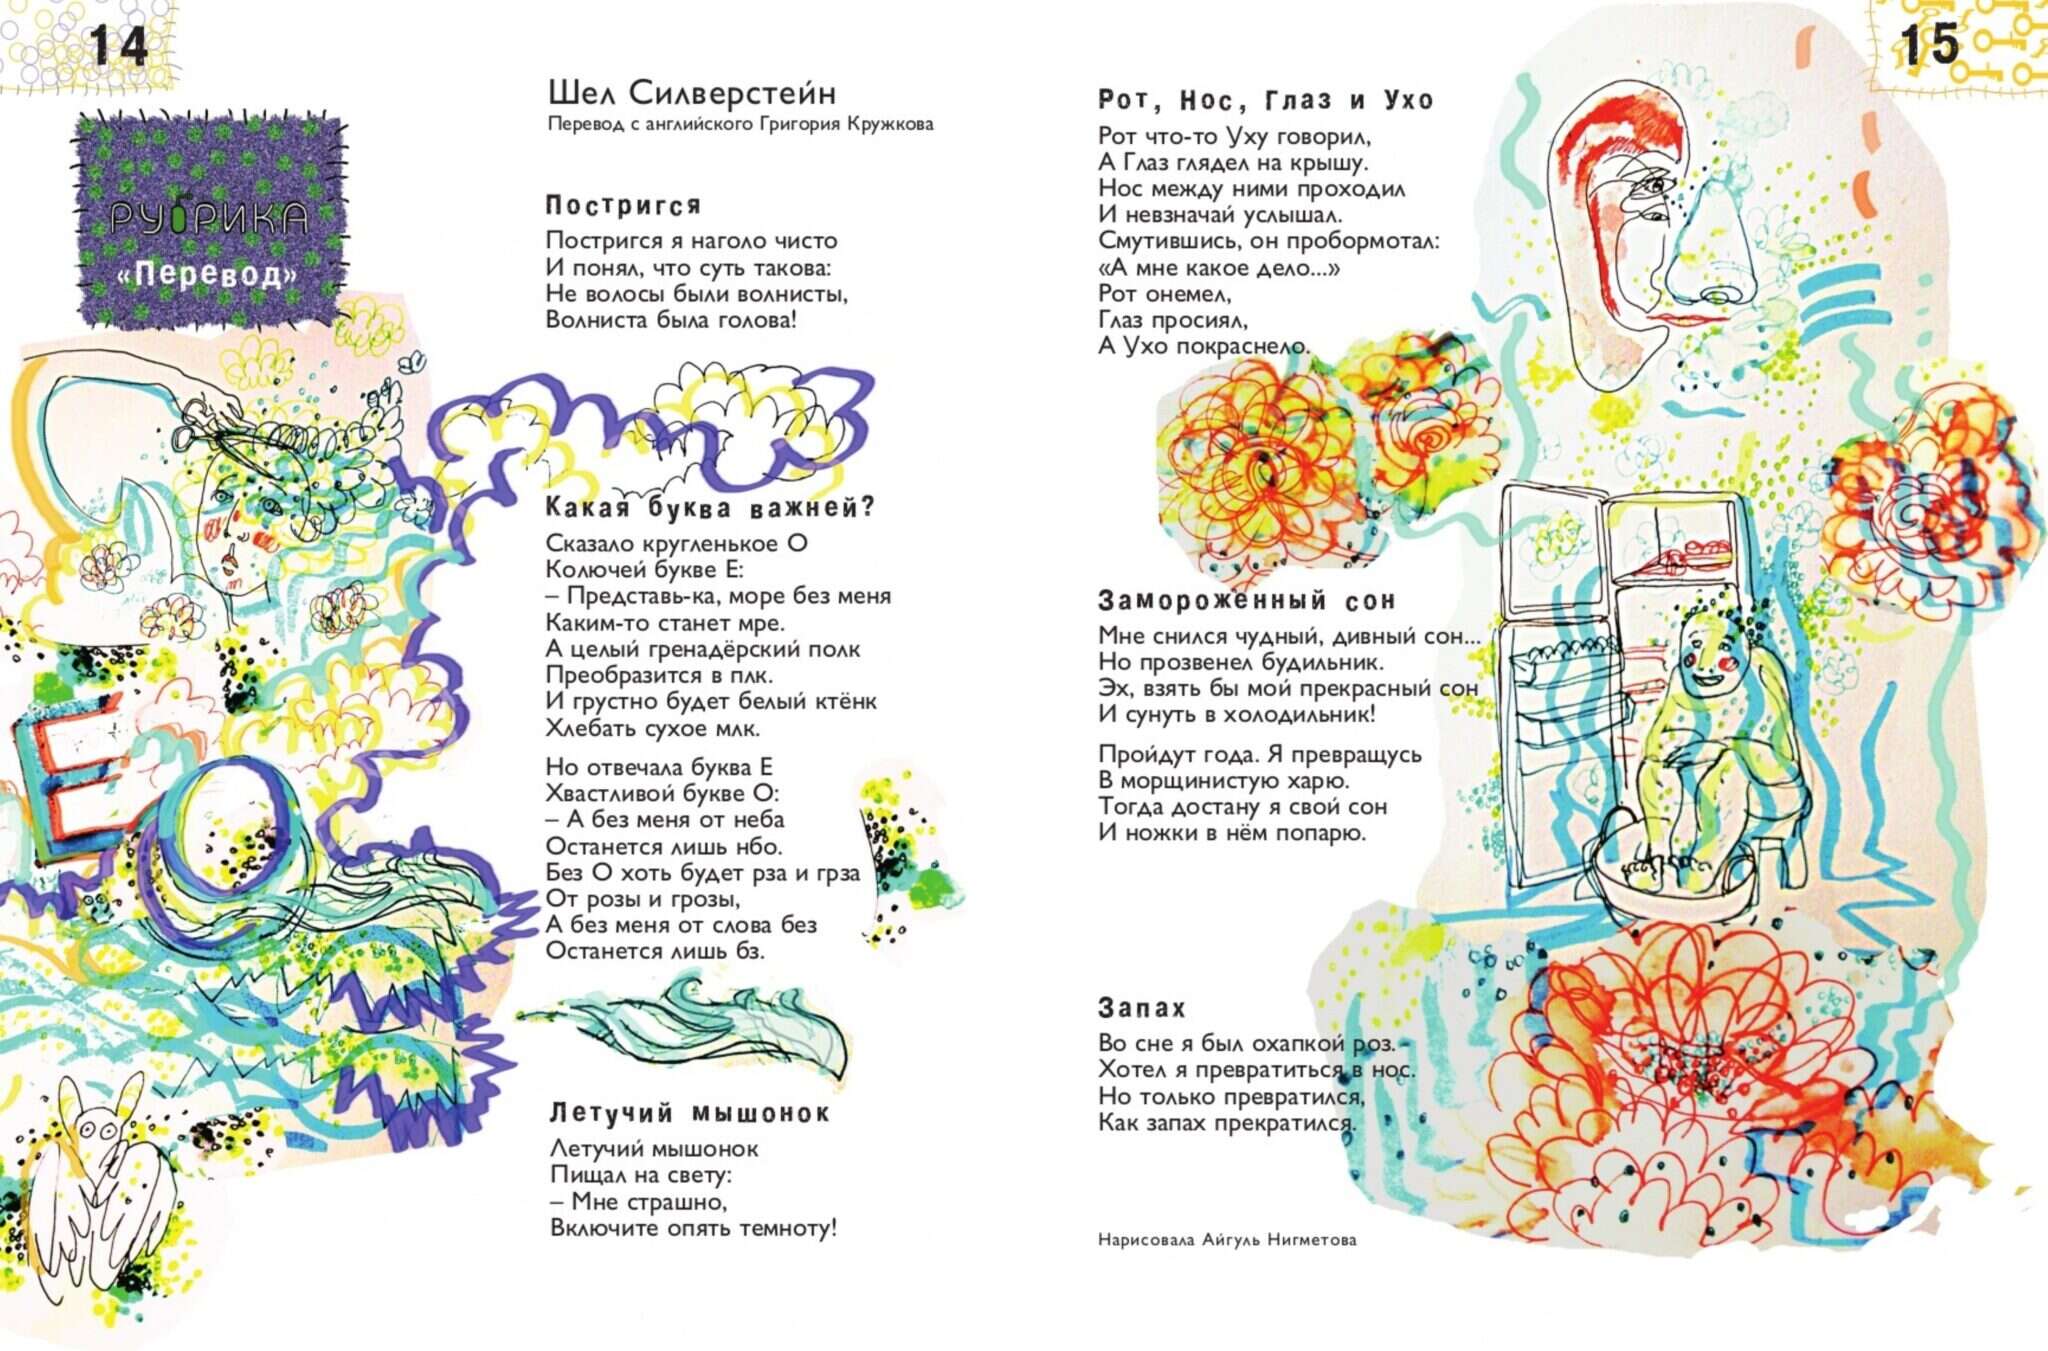 14
РУБРИКА
«Перевод»
Шел Силверстейн
Перевод с английского Григория Кружкова
Постригся
Постригся я наголо чисто
И понял, что суть такова:
Не волосы были волнисты,
Волниста была голова!
Какая буква важней?
Сказало кругленькое О
Колючей букве Е:
– Представь-ка, море без меня
Каким-то станет мре.
А целый гренадёрский полк
Преобразится в плк.
И грустно будет белый ктёнк
Хлебать сухое млк.
Но отвечала буква Е
Хвастливой букве О:
– А без меня от неба
Останется лишь нбо.
Без О хоть будет рза и грза
От розы и грозы,
А без меня от слова без
Останется лишь бз.
Летучий мышонок
Летучий мышонок
Пищал на свету:
– Мне страшно,
Включите опять темноту!
Е
О
15
Рот, Нос, Глаз и Ухо
Рот что-то Уху говорил,
А Глаз глядел на крышу.
Нос между ними проходил
И невзначай услышал.
Смутившись, он пробормотал:
«А мне какое дело...»
Рот онемел,
Глаз просиял,
А Ухо покраснело.
Замороженный сон
Мне снился чудный, дивный сон...
Но прозвенел будильник.
Эх, взять бы мой прекрасный сон
И сунуть в холодильник!
Пройдут года. Я превращусь
В морщинистую харю.
Тогда достану я свой сон
И ножки в нём попарю.
Запах
Во сне я был охапкой роз.
Хотел я превратиться в нос.
Но только превратился,
Как запах прекратился.
Нарисовала Айгуль Нигметова